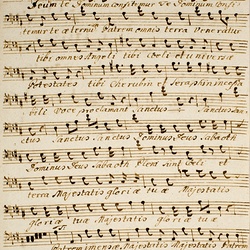 Deum te Dominum confitemur te Dominum confi-
temur te æternum Patrem omnis terra Veneratur
tibi omnes Angeli tibi Coeli et universæ
Potestates tibi Cherubim et Seraphim incessa
bili Voce proclamant Sanctus Sanctus
ctus Sanctus Sanctus Dominus Deus Sabaoth
Dominus Deus Sabaoth Pleni sunt Coeli et
terra Majestatis gloriæ tuæ Majestatis
gloriæ tuæ Majestatis gloriæ tuæ
Patrem immensæ Majestatis Patrem